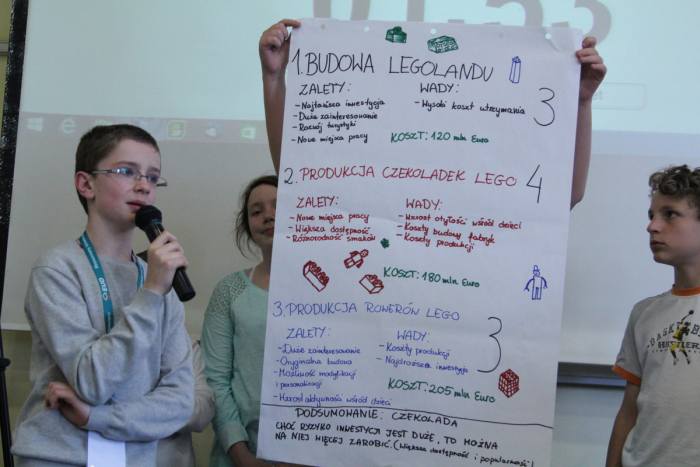 01:53
1. BUDOWA LEGOLANDU
ZALETY:
WADY:
- Najtańsza inwestycja
- Duże zainteresowanie
- Rozwój turystyki
- Nowe miejsca pracy
- Wysoki koszt utrzymania
3
KOSZT: 120 mln Euro
2. PRODUKCJA CZEKOLADEK LEGO
4
ZALETY:
WADY:
- Nowe miejsca pracy
- Większa dostępność
- Różnorodność smaków
- Wzrost otyłości wśród dzieci
- Koszty budowy fabryk
- Koszty produkcji
KOSZT: 180 mln Euro
3. PRODUKCJA ROWERÓW LEGO
3
ZALETY:
WADY:
- Duże zainteresowanie
- Oryginalna budowa
- Możliwość modyfikacji
i personalizacji
- Wzrost aktywności wśród dzieci
- Koszty produkcji
- Najdroższa inwestycja
KOSZT: 205 mln Euro
PODSUMOWANIE: CZEKOLADA
CHOĆ RYZYKO INWESTYCJI JEST DUŻE, TO MOŻNA
NA NIEJ WIĘCEJ ZAROBIĆ. (Większa dostępność i popularność)